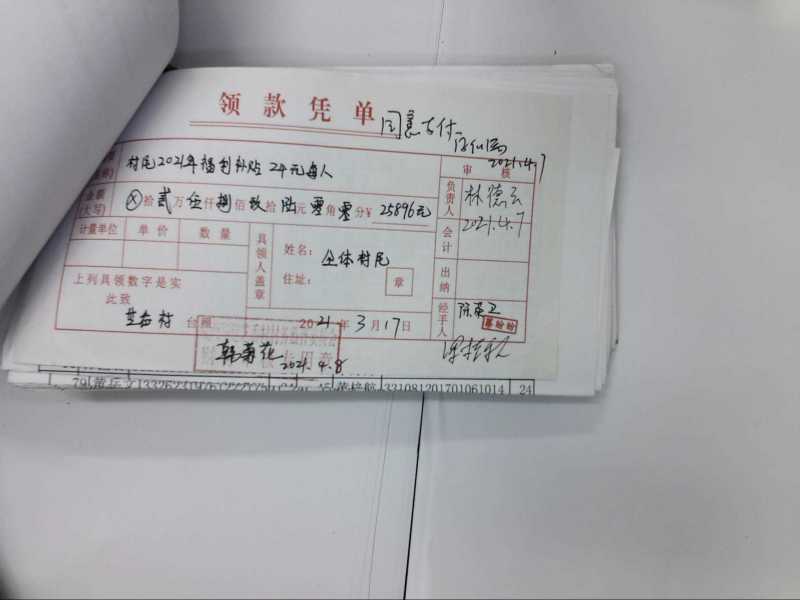 领款凭单
同意支付
2021.4.7
村民2021年福利补贴 24元每人
审核
(大写) ⊗拾贰万伍仟捌佰玖拾陆元零角零分¥ 25896元
负责人 林德云
2021.4.7
计量单位 单价 数量
会计
具领人盖章
姓名: 全体村民
住址: 章
出纳
上列具领数字是实
此致
经手人 陈英卫
村 台照 2021年3月17日
韩菊花
2021.4.8
331081201701061014 24